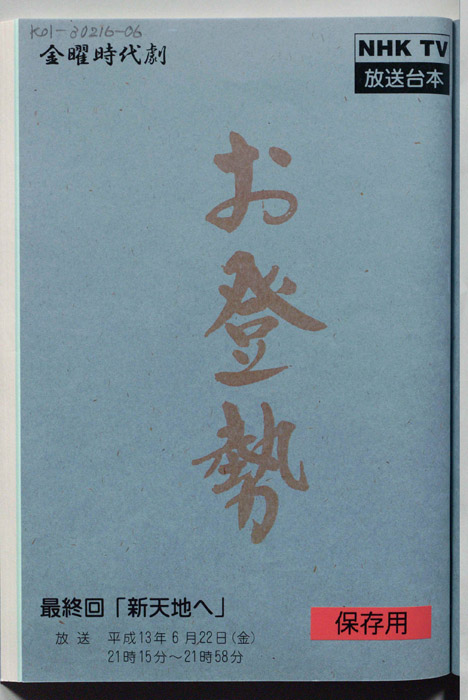 K01-30216-06
金曜時代劇
NHK TV
放送台本
お登勢
最終回「新天地へ」
放送 平成13年6月22日(金)
21時15分～21時58分
保存用